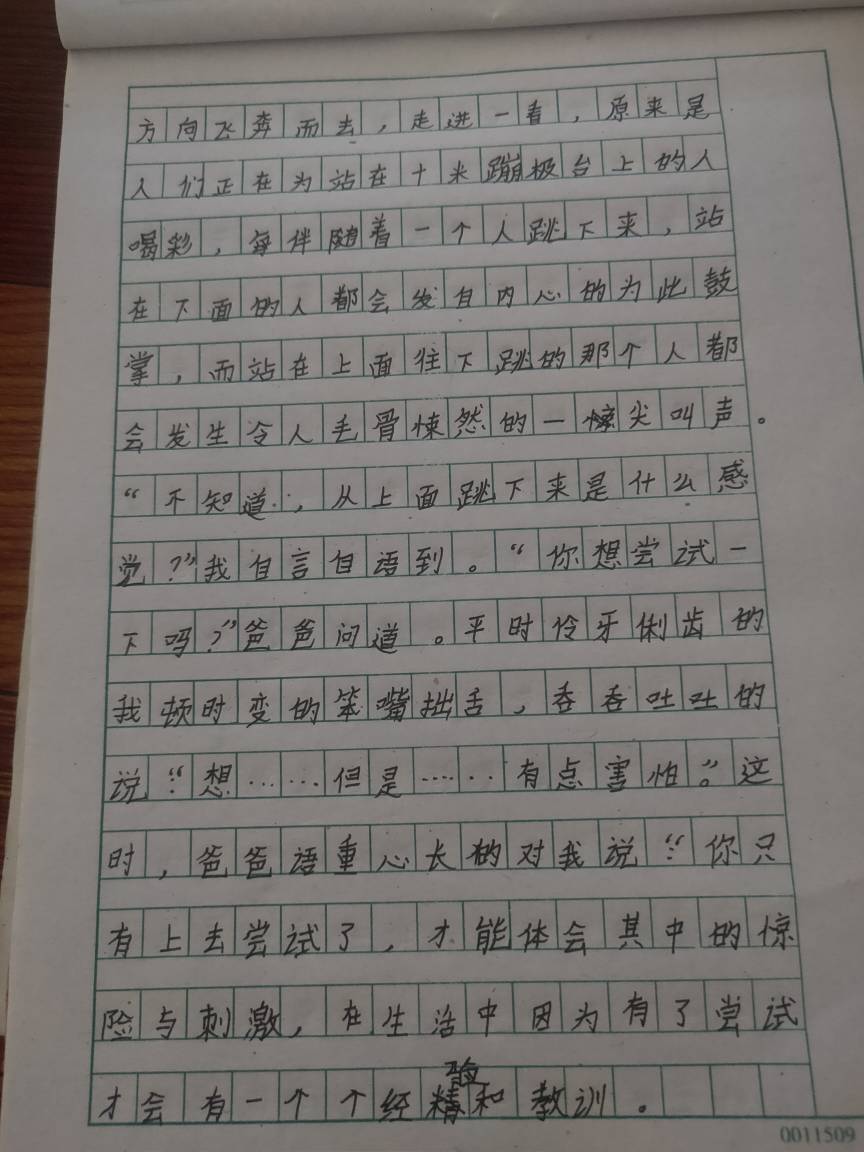 方向飞奔而去，走进一看，原来是
人们正在为站在十米蹦极台上的人
喝彩，每伴随着一个人跳下来，站
在下面的人都会发自内心的为此鼓
掌，而站在上面往下跳的那个人都
会发生令人毛骨悚然的一惊尖叫声。
“不知道，从上面跳下来是什么感
觉？”我自言自语到。“你想尝试一
下吗？”爸爸问道。平时伶牙俐齿的
我顿时变的笨嘴拙舌，吞吞吐吐的
说：“想……但是……有点害怕。”这
时，爸爸语重心长的对我说：“你只
有上去尝试了，才能体会其中的惊
险与刺激，在生活中因为有了尝试
才会有一个个经验和教训。
0011509